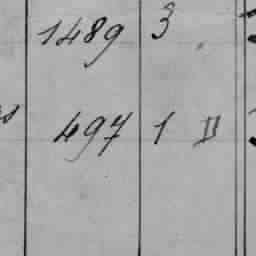 1489 3
497 1 II